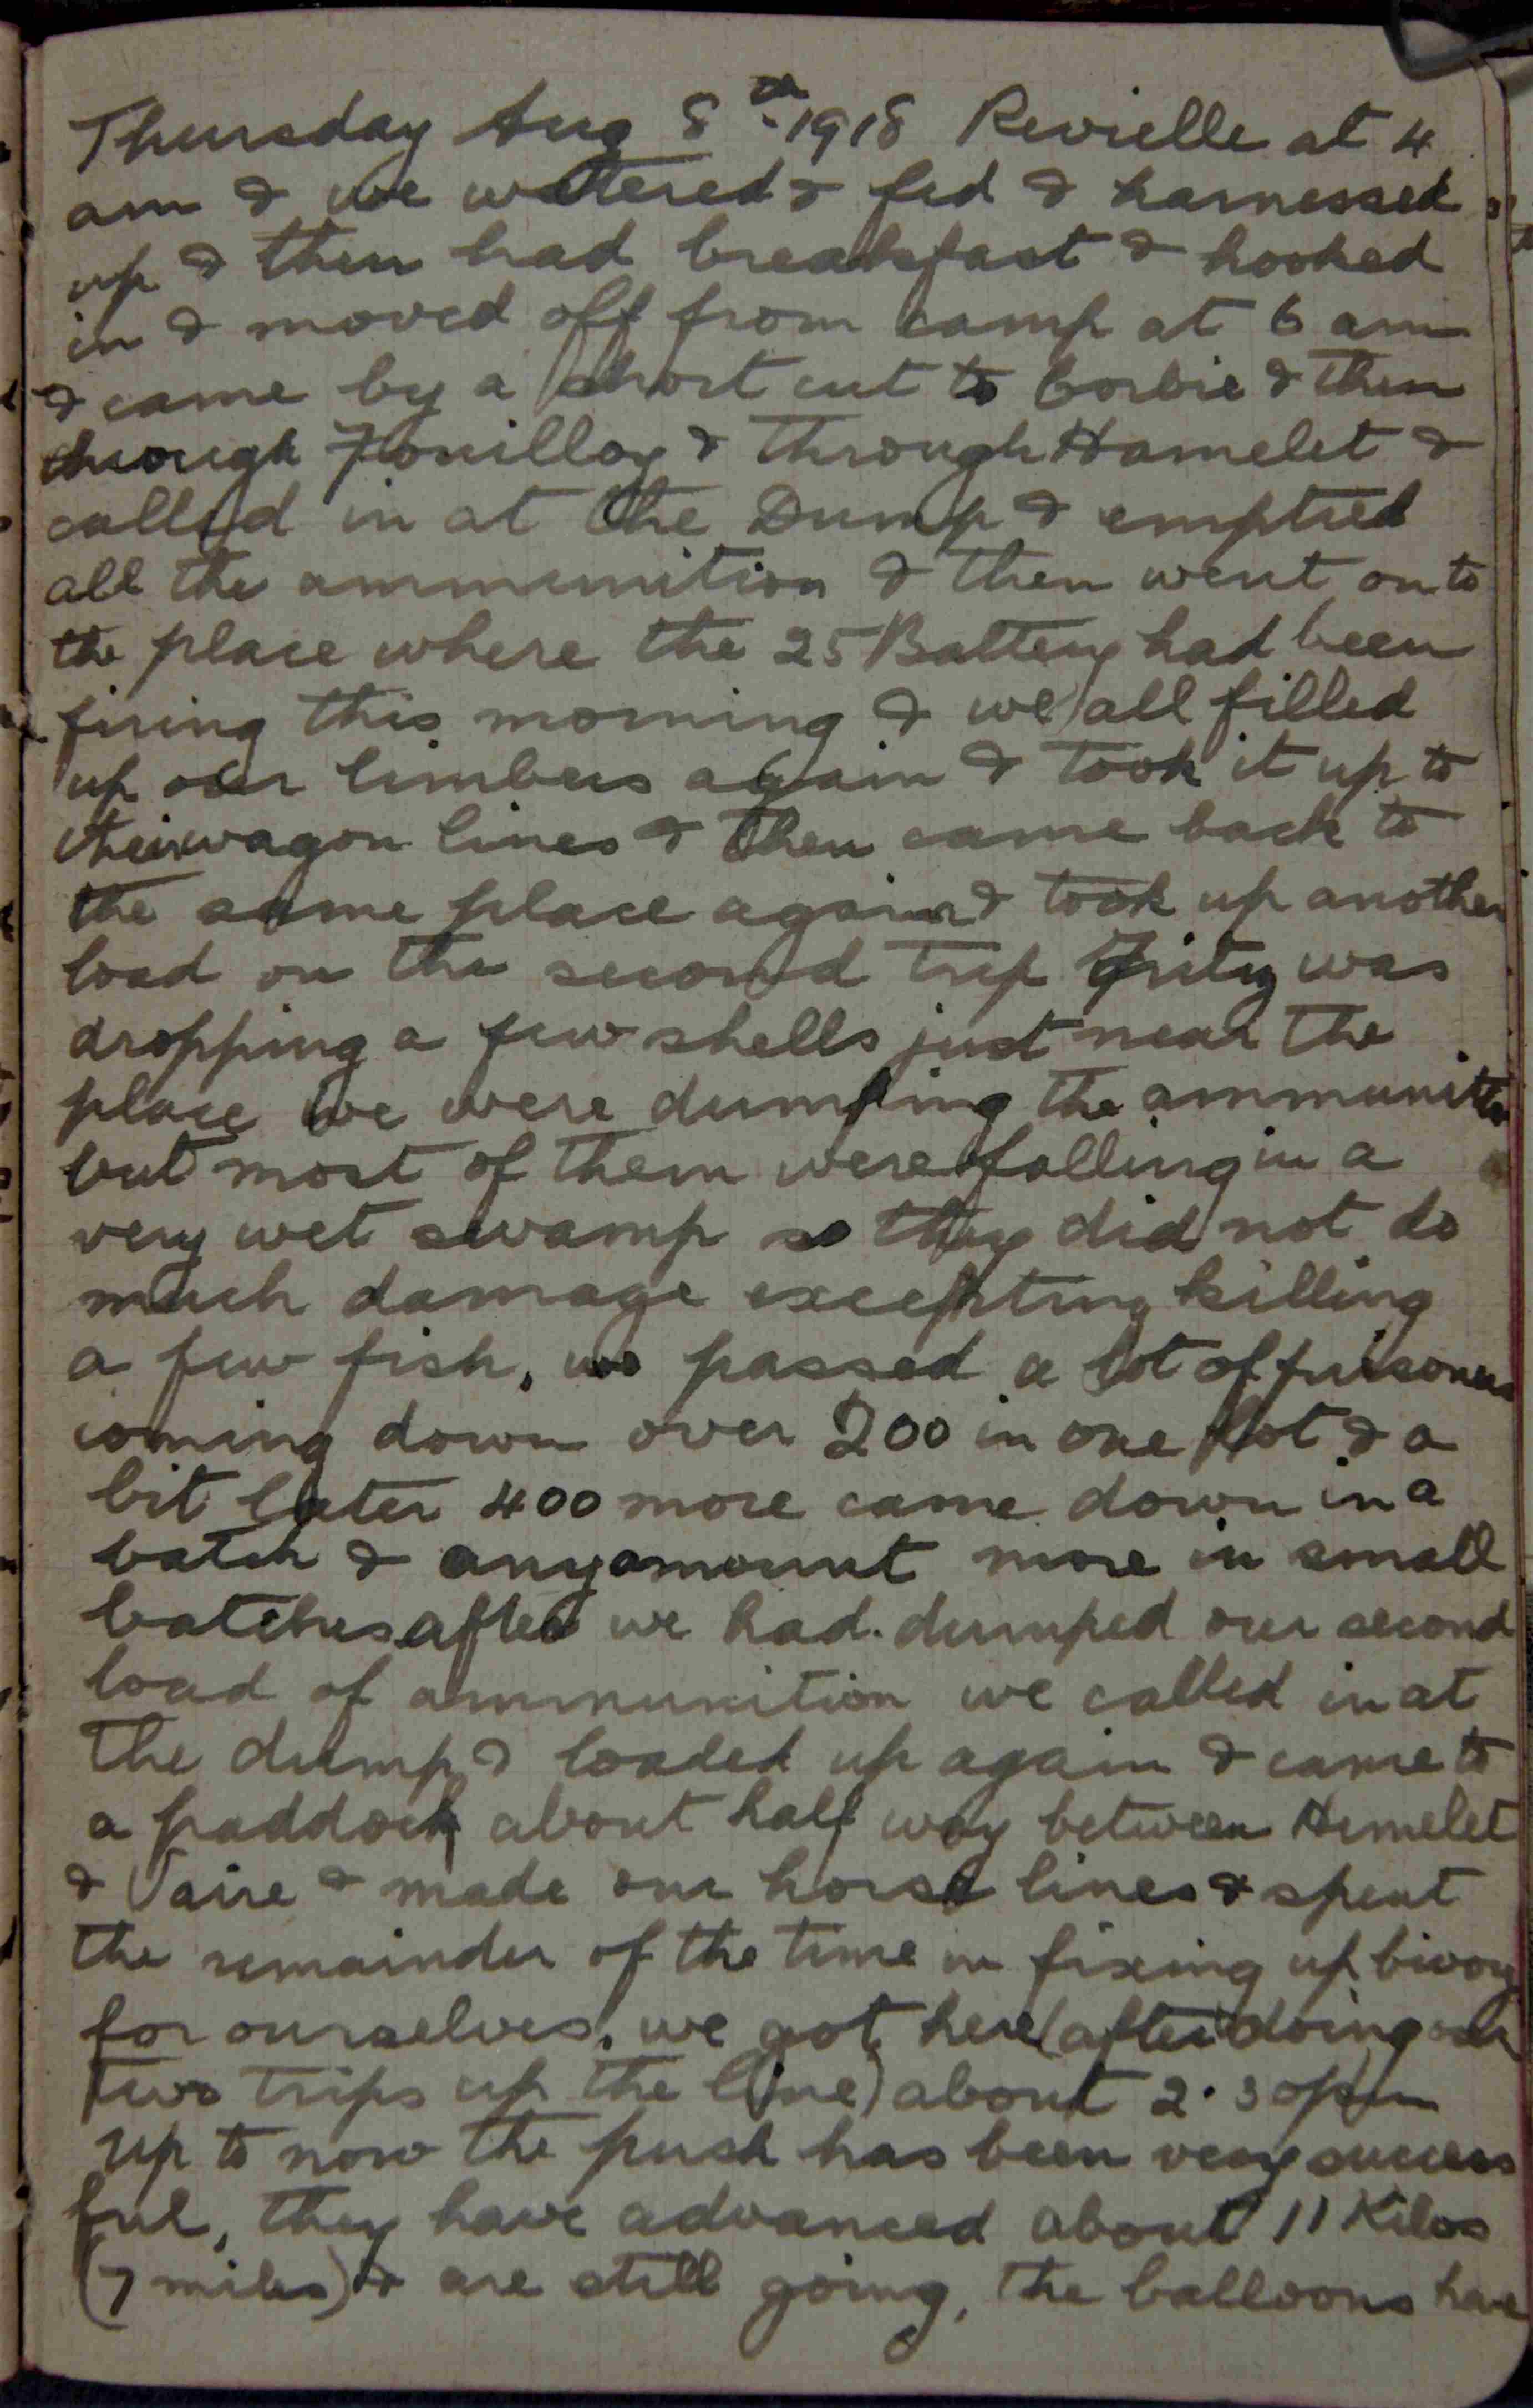 Thursday Aug 8th 1918 Revielle at 4
am & we watered & fed & harnessed
up & then had breakfast & hooked
in & moved off from camp at 6 am
& came by a short cut to Corbie & then
through Fouilloy & through Hamelet &
called in at the Dump & emptied
all the ammunition & then went on to
the place where the 25 Battery had been
firing this morning & we all filled
up our limbers again & took it up to
their wagon lines & then came back to
the same place again & took up another
load on the second trip Fritz was
dropping a few shells just near the
place we were dumping the ammunition
but most of them were falling in a
very wet swamp so they did not do
much damage excepting killing
a few fish, we passed a lot of prisoners
coming down over 200 in one lot & a
bit later 400 more came down in a
batch & any amount more in small
batches after we had dumped our second
load of ammunition we called in at
the dump & loaded up again & came to
a paddock about half way between Hemelet
& Vaire & made our horse lines & spent
the remainder of the time in fixing up bivoy
for ourselves, we got here (after doing our
two trips up the line) about 2.30 pm
Up to now the push has been very success
ful, they have advanced about 11 Kilos
(7 miles) & are still going, the balloons have